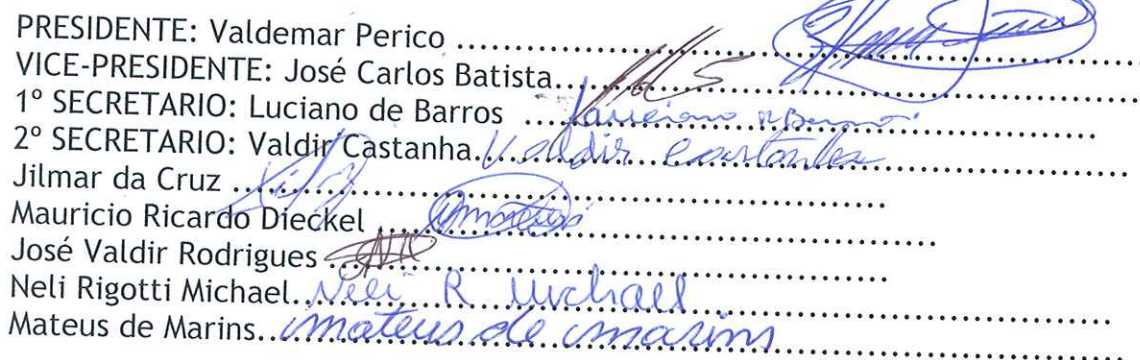 PRESIDENTE: Valdemar Perico ..........................................................
VICE-PRESIDENTE: José Carlos Batista..........................................................
1º SECRETARIO: Luciano de Barros ..........................................................
2º SECRETARIO: Valdir Castanha.. Valdir Castanha
Jilmar da Cruz ..........................................................
Mauricio Ricardo Dieckel ..........................................................
José Valdir Rodrigues ..........................................................
Neli Rigotti Michael.. Neli R Michael
Mateus de Marins.. mateus de marins